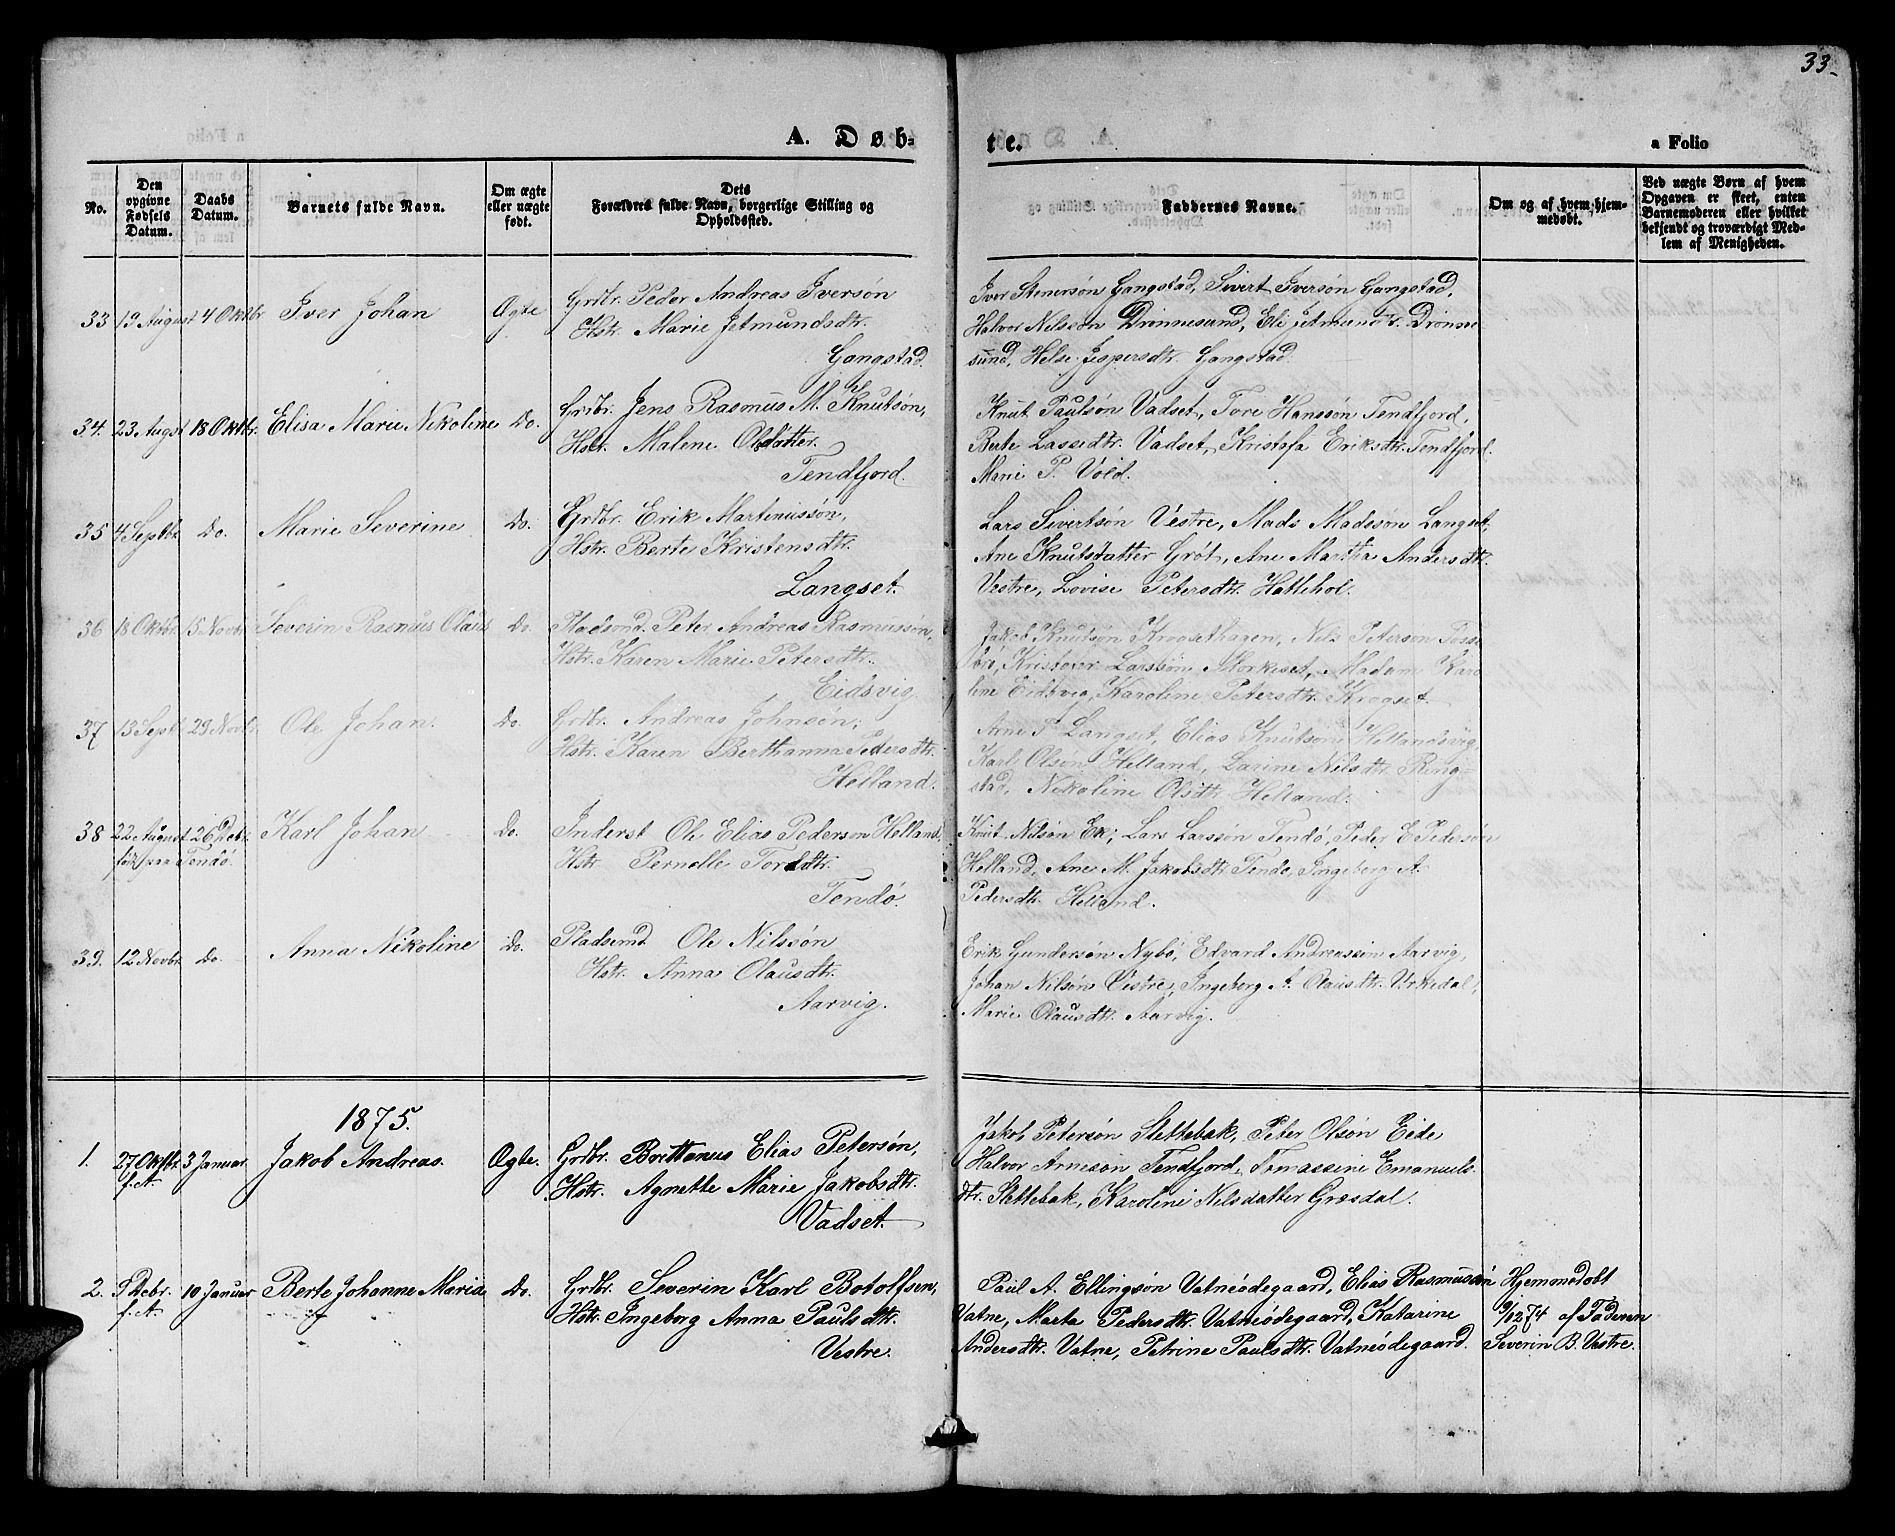 33-
A. Døb-
te.
a Folio
No.
Den opgivne Fødsels Datum.
Daabs Datum.
Barnets fulde Navn.
Om ægte eller uægte født.
Dets Forældres fulde Navn, borgerlige Stilling og Opholdssted.
Faddernes Navne.
Om og af hvem hjemmedøbt.
Ved uægte Børn af hvem Opgaven er skeet, enten Barnemoderen eller hvilket bekjendt og troværdigt Medlem af Menigheden.
33 19 August 4 Oktbr Iver Johan Ægte Grdbr. Peder Andreas Iversøn
Hstr. Marie Jetmundsdtr.
Gangstad.
Iver Stenersøn Gangstad, Sivert Iversøn Gangstad,
Halvor Nilssøn Drönnesund, Eli Jetmundsd. Drönne
sund, Helse Jespersdtr. Gangstad.
34. 23 Augst 18 Oktbr. Elisa Marie Nikoline Do. Grdbr. Jens Rasmus M. Knutsøn,
Hstr. Malene Olsdatter.
Tendfjord.
Knut Paulsøn Vadset, Tore Hanssøn Tendfjord,
Berte Lassedtr. Vadset, Kristofa Eriksdtr. Tendfjord.
Marie P. Vold.
35 4 Septbr. Do. Marie Severine Do. Grdbr. Erik Martinussøn,
Hstr. Berte Kristensdtr.
Langset.
Lars Sivertsøn Vestre, Mads Madssøn Langset,
Ane Knutsdatter Gröt, Ane Martha Andersdtr.
Vestre, Lovise Petersdtr. Hattehol.
36 18 Oktbr. 15 Novbr. Severin Rasmus Olaus Do. Pladsmd. Peter Andreas Rasmussøn,
Hstr. Karen Marie Petersdtr.
Eidsvig
Jakob Knutsøn Krogsethagen, Nils Petersøn Fosse
brö, Kristofer Larssøn Morkeset, Madam Karo
line Eidsvig, Karoline Petersdtr. Krogset.
37 13 Septr. 29 Novbr. Ole Johan. Do. Grdbr. Andreas Johnsøn;
Hstr. Karen Berthanna Pedersdtr.
Helland.
Arne P. Langset, Elias Knutsøn Hellandsvig
Karl Olsøn Helland, Larine Nilsdtr. Ring-
stad, Nikoline Olsdtr. Helland.
38 22 August 26 Debr. Karl Johan Do. Inderst Ole Elias Pedersøn Helland,
født paa Tendö.
Hstr. Pernelle Tordsdtr.
Tendö.
Knut Nilsøn Ek; Lars Larssøn Tendö, Peder E. Pedersøn
Helland, Ane M. Jakobsdtr. Tendö, Ingeberg A.
Pedersdtr. Helland.
39. 12 Novbr. Do. Anna Nikoline Do. Pladsmd Ole Nilssøn
Hstr. Anna Olausdtr.
Aarvig.
Erik Gundersøn Nybö, Edvard Andreassøn Aarvig,
Johan Nilsøn Vestre, Ingeborg A. Olausdtr. Urkedal,
Marie Olausdtr. Aarvig.
1875.
1. 27 Oktbr. 3 Januar Jakob Andreas. Ægte. Grdbr. Brettenus Elias Petersøn,
f. A.
Hstr. Agnette Marie Jakobsdtr.
Vadset.
Jakob Petersøn Slettebak, Peter Olsøn Eide
Halvor Arnesøn Tendfjord, Tomassine Emanuels
dtr. Slettebak, Karoline Nilsdatter Grøsdal.
2. 9 Debr. 10 Januar Berte Johanne Maria Do. Grdbr. Severin Karl Botolfsen,
f. A.
Hstr. Ingeborg Anna Paulsdtr.
Vestre.
Paul A. Ellingsøn Vatneödegaard, Elias Rasmussøn
Vatne, Marta Pedersdtr. Vatneödegaard, Katarine
Andersdtr. Vatne, Petrine Paulsdtr. Vatneödegaard.
Hjemmedøbt
9/12 74 af Faderen
Severin B. Vestre.